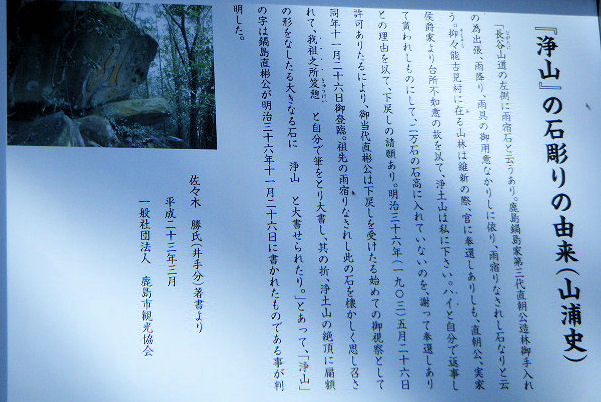 『浄山』の石彫りの由来(山浦史)
「長谷山道の左側に雨宿石と云うあり。鹿島鍋島家第三代直朝公造林御手入れ
の為出張、雨降り、雨具の御用意なかりしに依り、雨宿りなされし石なりと云
う。抑々能古見村に在る山林は維新の際、官に奉還しありしも、直朝公、実家
侯爵家より台所不如意の故を以て、浄土山は私に下さい。ハイと自分で返事し
て貰われしものにして、二万石の石高に入れていないのを、謝って奉還しあり
との理由を以て、下戻しの請願あり。明治三十六年(一九〇三)五月二十六日
許可ありたるにより、御当代直彬公は下戻しを受けたる始めての御視察として
同年十一月二十六日御登臨。祖先の雨宿りなされし此の石を懐かしく思し召さ
れて、我祖之所笈憩 と自分で筆をとり大書し、其の折、浄土山の絶頂に扁額
の形をなしたる大きなる石に 浄山 と大書せられたり。」とあって、「浄山」
の字は鍋島直彬公が明治三十六年十一月二十六日に書かれたものである事が判
明した。
佐々木 勝氏(井手分)著書より
平成二十三年三月
一般社団法人 鹿島市観光協会